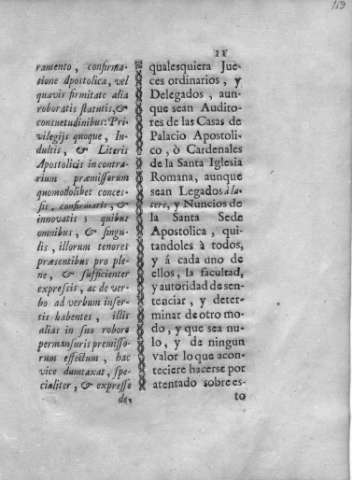 119
11
ramento, confirma-
tione Apostolica, vel
quavis firmitate alia
roboratis statutis, &
consuetudinibus: Pri-
vilegijs quoque, In-
dultis, & Literis
Apostolicis in contra-
rium præmissorum
quomodolibet conces-
sis, confirmatis, &
innovatis; quibus
omnibus, & singu-
lis, illorum tenores
præsentibus pro ple-
ne, & sufficienter
expressis, ac de ver-
bo ad verbum inser-
tis habentes, illis
alias in suo robore
permansuris præmisso-
rum effectum, hac
vice dumtaxat, spe-
cialiter, & expresse
de-
qualesquiera Jue-
ces ordinarios, y
Delegados, aun-
que seàn Audito-
res de las Casas de
Palacio Apostoli-
co, ò Cardenales
de la Santa Iglesia
Romana, aunque
sean Legados à la-
tere, y Nuncios de
la Santa Sede
Apostolica, qui-
tandoles à todos,
y á cada uno de
ellos, la facultad,
y autoridad de sen-
tenciar, y deter-
minar de otro mo-
do, y que sea nu-
lo, y de ningun
valor lo que acon-
teciere hacerse por
atentado sobre es-
to